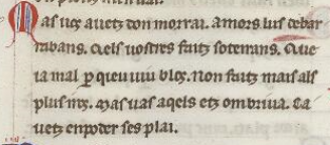 Mas uez auetz don morrai. amors uis cobar
rabans. Qels uostres faitz sotemans. Que
ia mal p queu uiu bloz. Non faitz mais als
plus mz. Mas uas aqels etz ombriua. Ca
uetz enpoder ses plai.